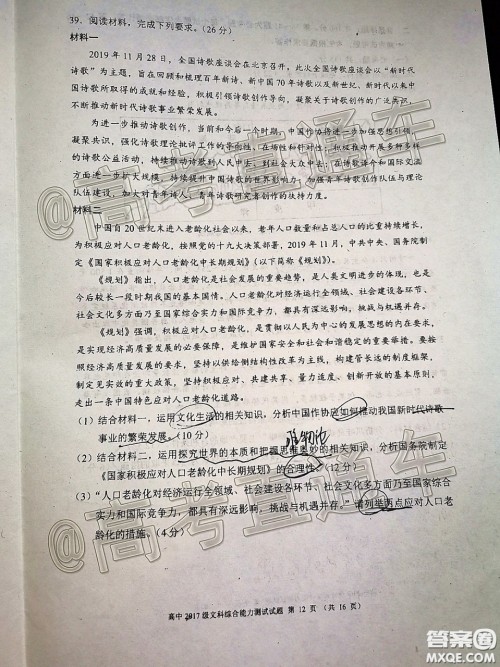 39．阅读材料，完成下列要求。(26分)
材料一
2019年11月28日，全国诗歌座谈会在北京召开，此次全国诗歌座谈会以“新时代
诗歌”为主题，旨在回顾和梳理百年新诗、新中国70年诗歌以及新世纪、新时代以来中
国诗歌所取得的成就和经验，积极引领诗歌创作导向，凝聚关于诗歌创作的广泛共识，
不断推动新时代诗歌事业繁荣发展。
为进一步推动诗歌创作，当前和今后一个时期，中国作协将进一步加强思想引领，
凝聚共识，强化诗歌理论批评工作的在场性和针对性；积极开展多种多样
的诗歌公益活动，持续推动诗歌到人民中去，到社会大众中去；在诗歌译介和国际交流
方面进一步扩大规模，持续提升中国诗歌的世界影响力；加强青年诗歌创作队伍与理论
队伍建设，加大对青年诗人、青年诗歌研究者创作的扶持力度。
材料二
中国自20世纪末进入老龄化社会以来，老年人口数量和占总人口的比重持续增长，
为积极应对人口老龄化，按照党的十九大决策部署，2019年11月，中共中央、国务院制定
《国家积极应对人口老龄化中长期规划》(以下简称《规划》)。
《规划》指出，人口老龄化是社会发展的重要趋势，是人类文明进步的体现，也是
今后较长一段时期我国的基本国情。人口老龄化对经济运行全领域、社会建设各环节、
社会文化多方面乃至国家综合实力和国际竞争力，都具有深远影响，挑战与机遇并存。
《规划》强调，积极应对人口老龄化，是贯彻以人民为中心的发展思想的内在要求，
是实现经济高质量发展的必要保障，是维护国家安全和社会和谐稳定的重要举措。要按
照经济高质量发展的要求，坚持以供给侧结构性改革为主线，构建管长远的制度框架，
制定见实效的重大政策，坚持积极应对、共建共享、量力适度、创新开放的基本原则，
走出一条中国特色应对人口老龄化道路。
(1) 结合材料一，运用文化生活的相关知识，分析中国作协应如何推动我国新时代诗歌
事业的繁荣发展。(10分)
(2) 结合材料二，运用探究世界的本质和把握思维奥妙的相关知识，分析国务院制定
《国家积极应对人口老龄化中长期规划》的合理性。(12分)
(3) “人口老龄化对经济运行全领域、社会建设各环节、社会文化多方面乃至国家综合
实力和国际竞争力，都具有深远影响，挑战与机遇并存。”请列举两点应对人口老
龄化的措施。(4分)
高中2017级文科综合能力测试试题 第12页（共16页）
@高考直通车
@高考直通车
@高考直通车
答案圈
MXQE.COM